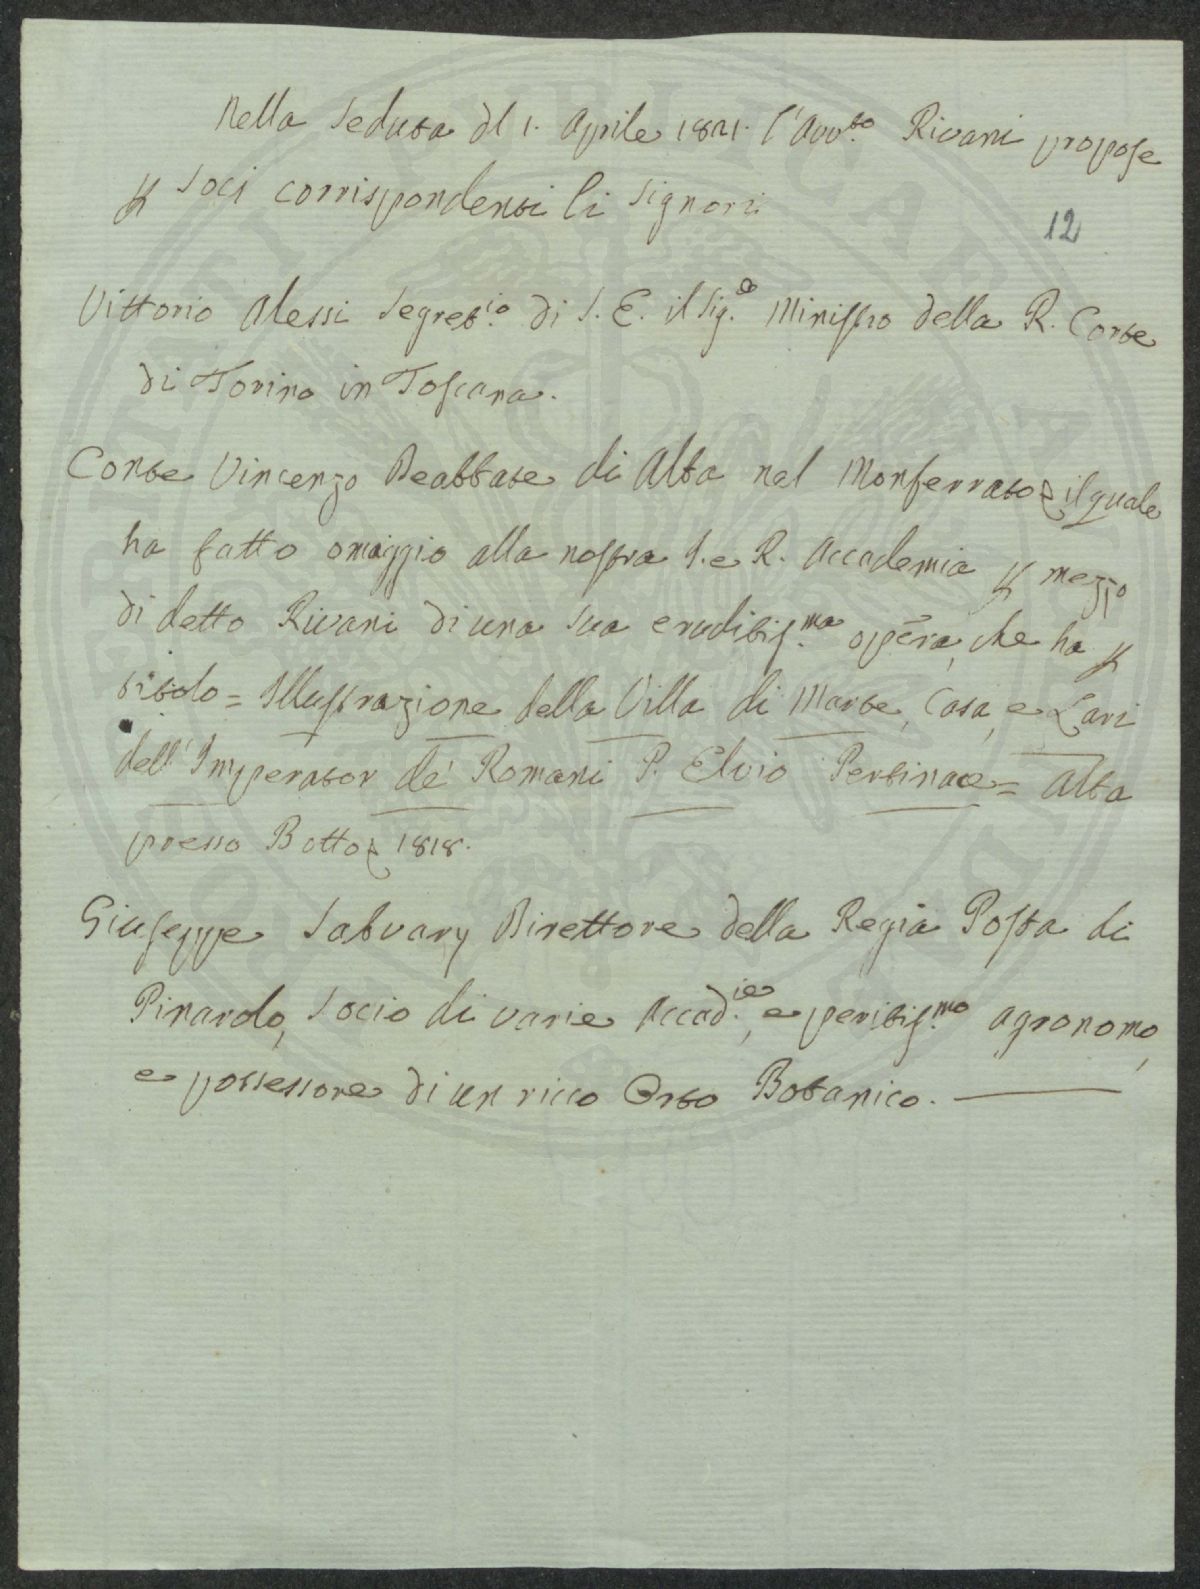 Nella Seduta dl 1. Aprile 1821. l'Avv.to Rivani propose
p Soci corrispondenti li Signori
12
Vittorio Alessi Segret.io di S. E. il Sig.e Ministro della R. Corte
di Torino in Toscana.
Conte Vincenzo Deabbate di Alba nel Monferrato, il quale
ha fatto omaggio alla nostra I. e R. Accademia p mezzo
di detto Rivani di una sua eruditis.ma opera, che ha p
titolo = Illustrazione della Villa di Marte, Casa, e Lari
dell'Imperator de' Romani P. Elvio Pertinace = Alba
presso Botto, 1818.
Giuseppe Direttore della Regia Posta di
Pinarolo, Socio di varie Accad.ie, e peritis.mo agronomo,
e possessore di un ricco Orto Botanico.